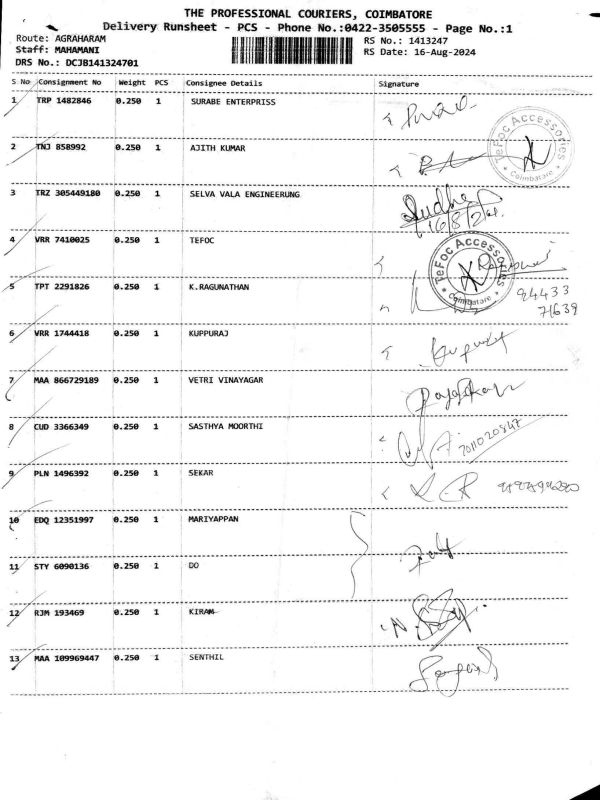 THE PROFESSIONAL COURIERS, COIMBATORE
Delivery Runsheet - PCS - Phone No.:0422-3505555 - Page No.:1
Route: AGRAHARAM
Staff: MAHAMANI
DRS No.: DCJB141324701
RS No.: 1413247
RS Date: 16-Aug-2024
S No Consignment No Weight PCS Consignee Details Signature
1 TRP 1482846 0.250 1 SURABE ENTERPRISS
2 TNJ 858992 0.250 1 AJITH KUMAR
TeFoc Accessories
Coimbatore
3 TRZ 305449180 0.250 1 SELVA VALA ENGINEERUNG
16/8/24
4 VRR 7410025 0.250 1 TEFOC
TeFoc Accessories
Coimbatore
5 TPT 2291826 0.250 1 K.RAGUNATHAN
94433
71639
6 VRR 1744418 0.250 1 KUPPURAJ
7 MAA 866729189 0.250 1 VETRI VINAYAGAR
8 CUD 3366349 0.250 1 SASTHYA MOORTHI
9 PLN 1496392 0.250 1 SEKAR
10 EDQ 12351997 0.250 1 MARIYAPPAN
11 STY 6090136 0.250 1 DO
12 RJM 193469 0.250 1 KIRAM
13 MAA 109969447 0.250 1 SENTHIL